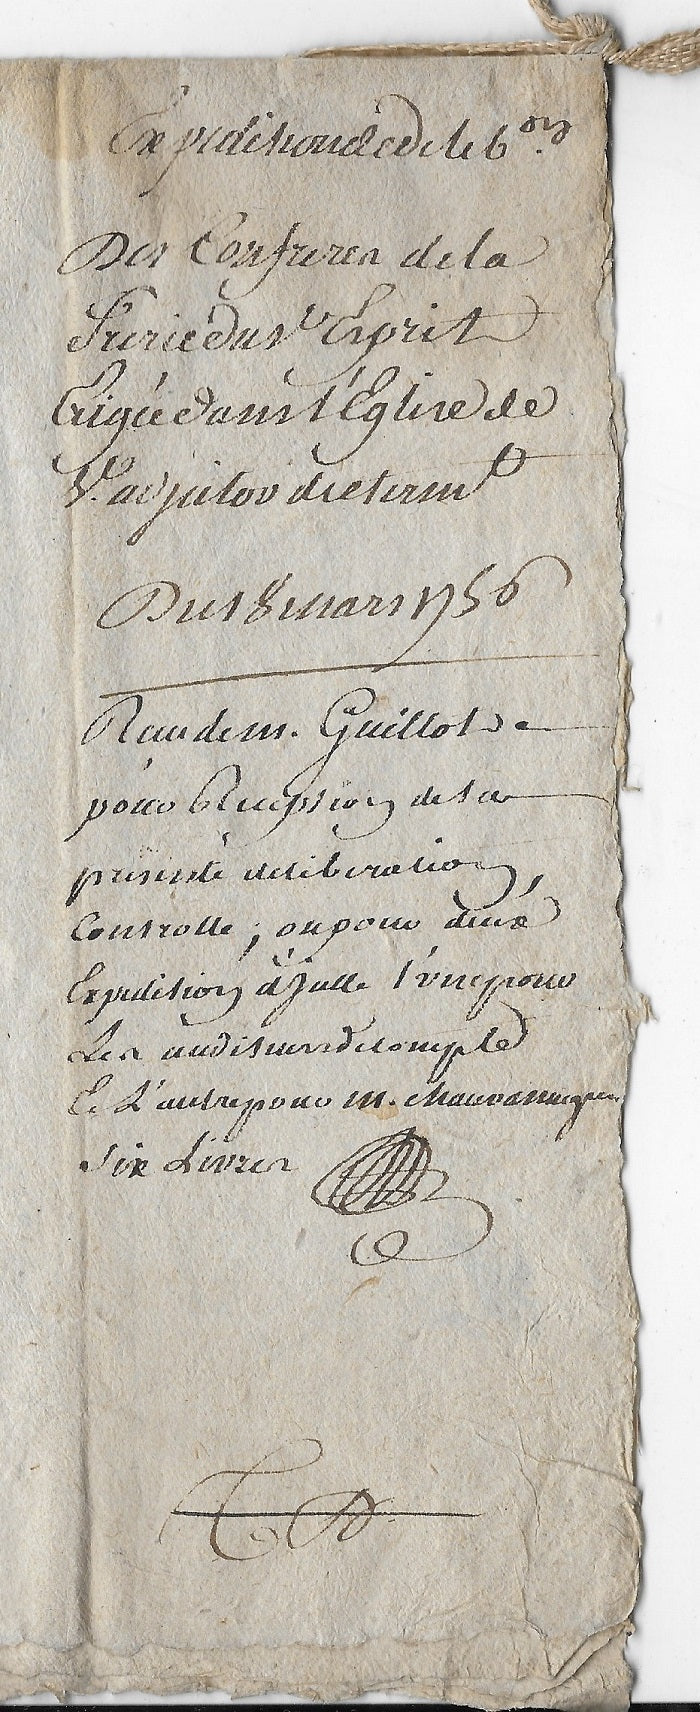 Expedition de delib.on
Des Confreres de la
Frerie du St Esprit
Erigée dans l'Eglise de
St. adjutor de
Du 18 mars 1756
Receu de m. Guillot
pour Reception de la
presente deliberation,
Controlle, ou pour deux
Expedition d'Jcelle l'une pour
Les auditeurs de compte
Et L'autre pour m.
Six Livres